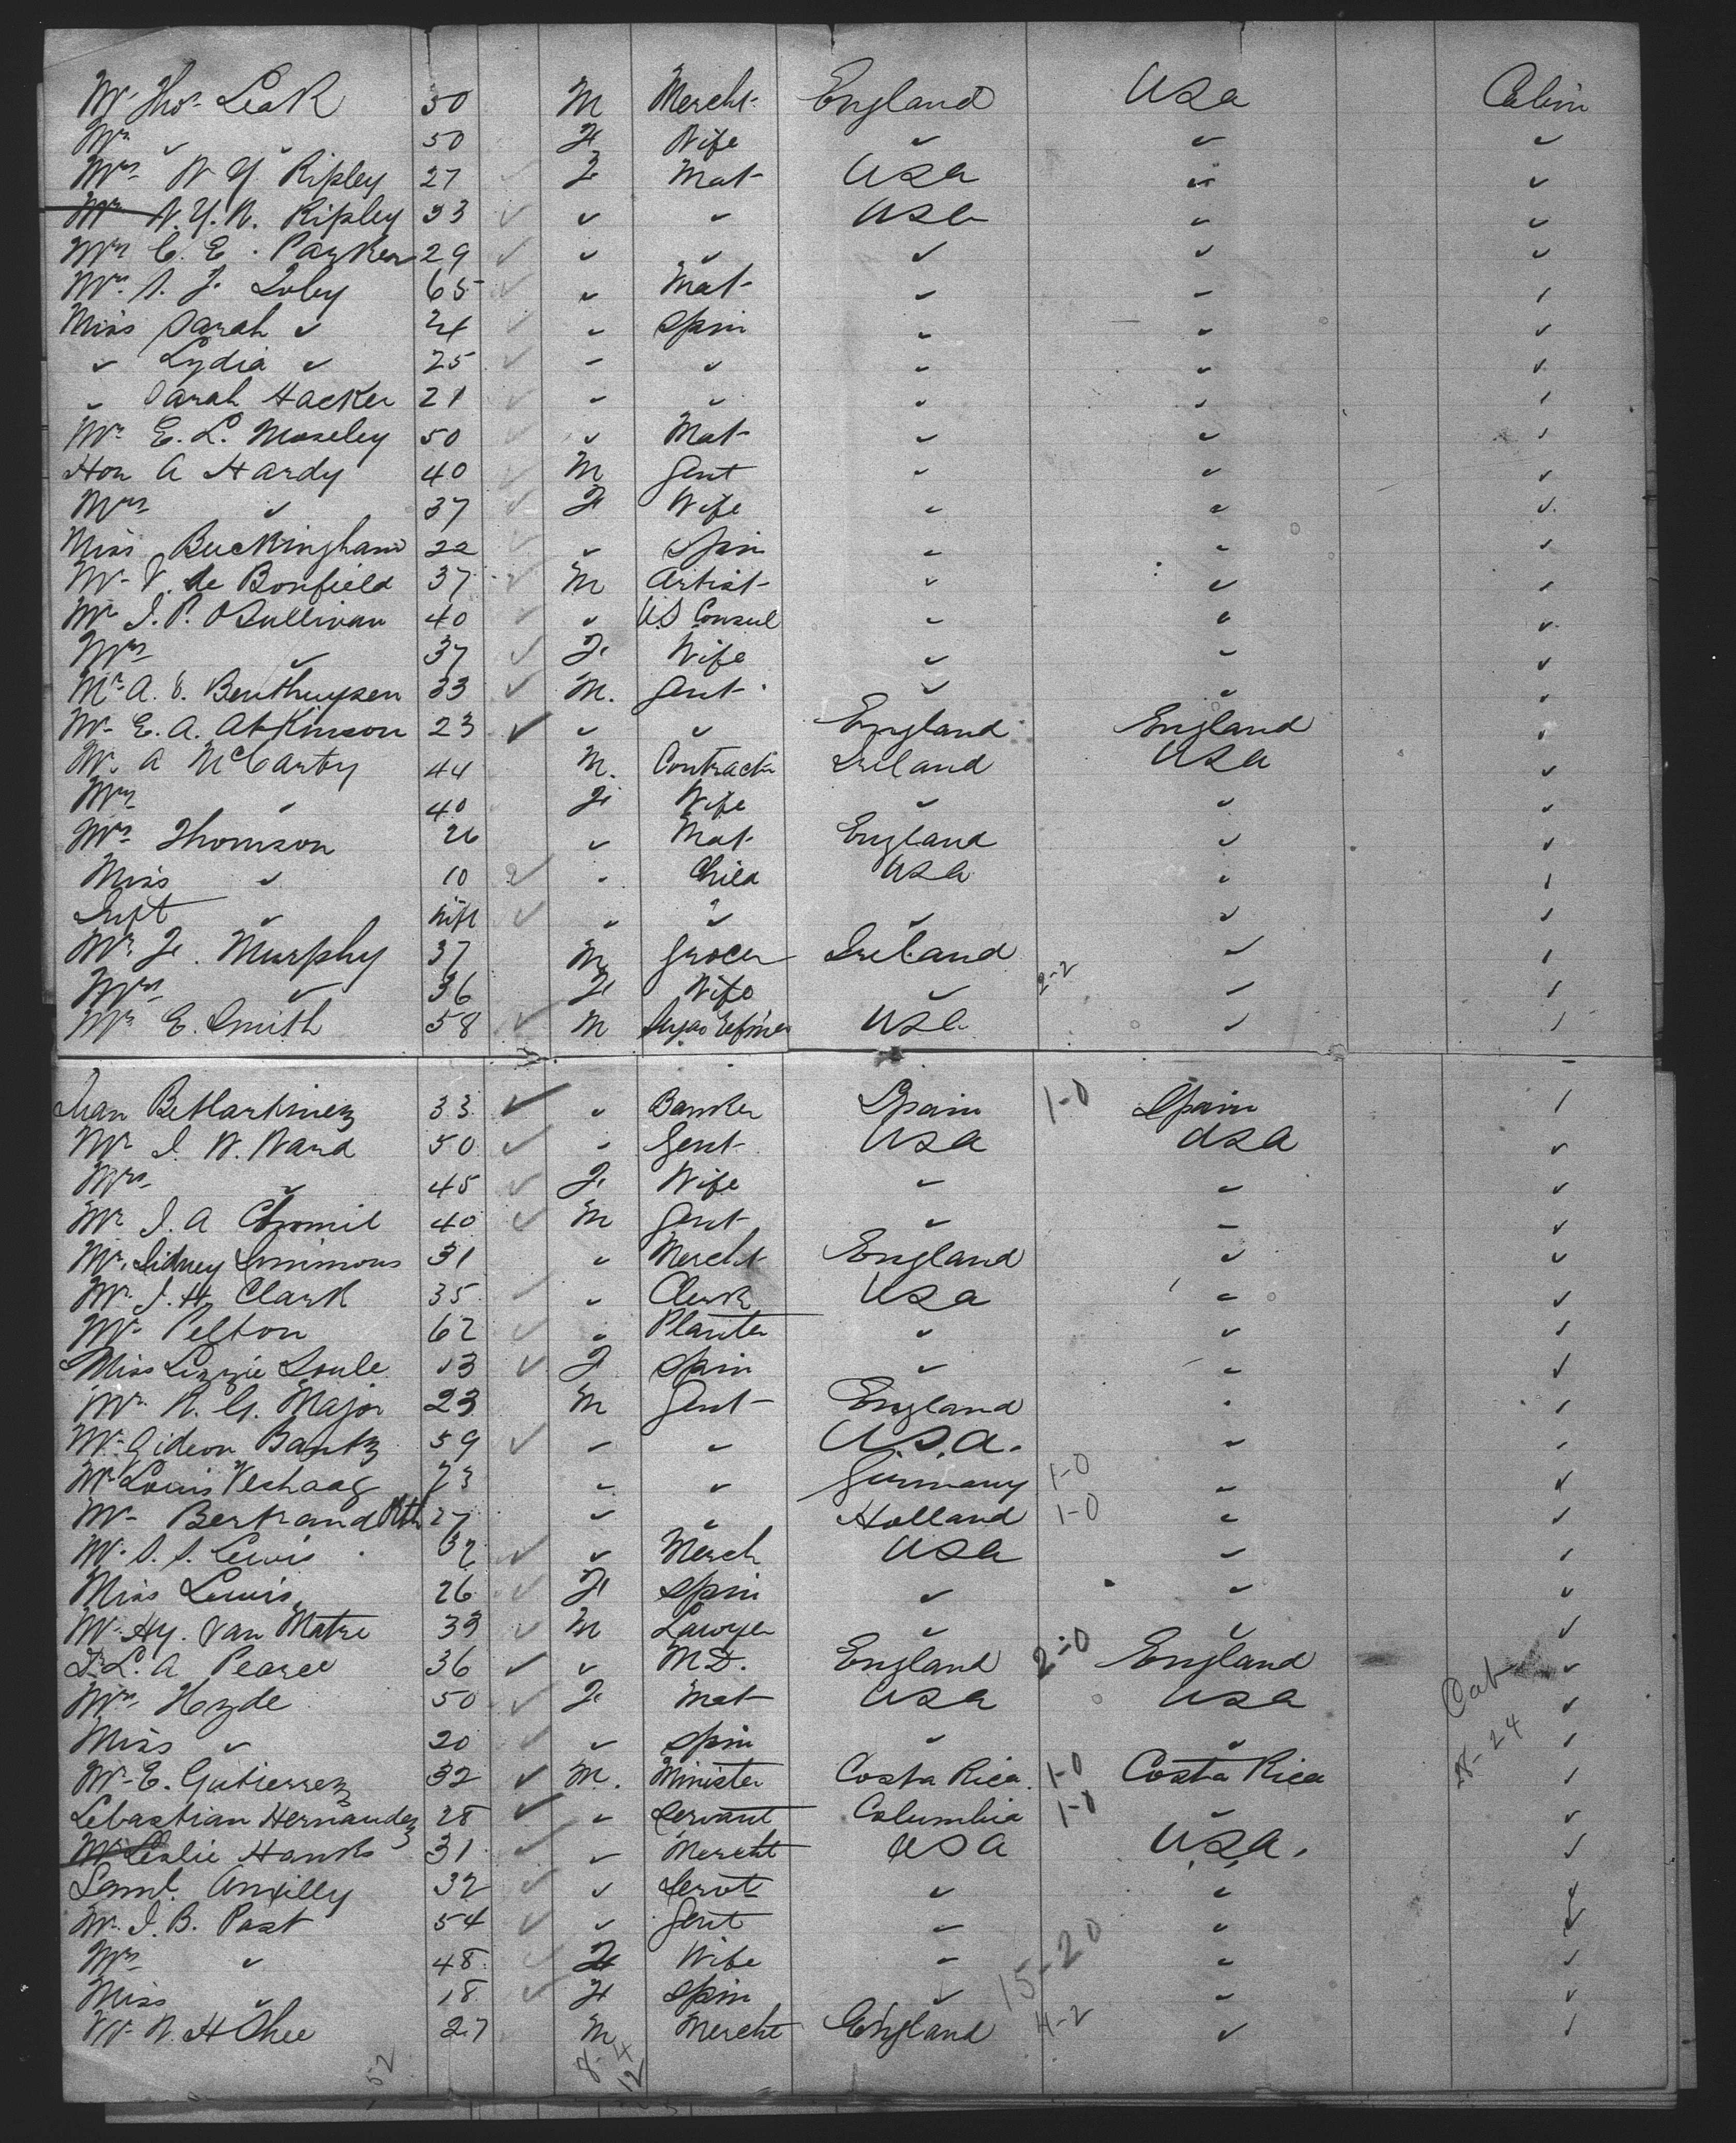 Mr. Thos. Leak 50 M Mercht. England USA Cabin
Mrs ✓ ✓ 50 F Wife ✓ ✓ ✓
Mrs N Y Ripley 27 F Mat USA ✓ ✓
N. Y. R. Ripley 33 ✓ ✓ ✓ USA ✓ ✓
Mrs C. E. Parker 29 ✓ ✓ ✓ ✓ ✓ ✓
Mrs. S. J. 65 ✓ ✓ Mat ✓ ✓ ✓
Miss Sarah ✓ 24 ✓ ✓ Spin ✓ ✓ ✓
✓ Lydia ✓ 25 ✓ ✓ ✓ ✓ ✓ ✓
✓ Sarah Hacker 21 ✓ ✓ ✓ ✓ ✓ ✓
Mrs E. L. Moseley 50 ✓ ✓ Mat ✓ ✓ ✓
Hon A Hardy 40 ✓ M Gent ✓ ✓ ✓
Mrs ✓ 37 ✓ F Wife ✓ ✓ ✓
Miss Buckingham 22 ✓ ✓ Spin ✓ ✓ ✓
Mr V. de Bonfield 37 ✓ M Artist ✓ ✓ ✓
Mr J. P. OSullivan 40 ✓ ✓ U.S Consul ✓ ✓ ✓
Mrs ✓ 37 ✓ F Wife ✓ ✓ ✓
Mr. A. V. Benthuysen 33 ✓ M. Gent ✓ ✓ ✓
Mr E. A. Atkinson 23 ✓ ✓ ✓ England England ✓
Mr. A McCarty 44 M. Contractr Ireland USA ✓
Mrs ✓ 40 F Wife ✓ ✓ ✓
Mrs Thomson 26 ✓ Mat England ✓ ✓
Miss ✓ 10 2 ✓ ✓ Child USA ✓ ✓
Inft ✓ Inft ✓ ✓ ✓ ✓ ✓ ✓
Mr. F. Murphy 37 M Grocer Ireland ✓ ✓
Mrs ✓ 36 F Wife ✓ 2-2 ✓ ✓
Mr E. Smith 58 ✓ M USA ✓ ✓
Juan 33 ✓ ✓ Banker Spain 1-0 Spain ✓
Mr J. W. Ward 50 ✓ ✓ Gent USA USA ✓
Mrs ✓ 45 ✓ F Wife ✓ ✓ ✓
Mr J. A 40 ✓ M Gent ✓ ✓ ✓
Mr. Sidney Simmons 31 ✓ Mercht England ✓ ✓
Mr. J. H. Clark 35 ✓ ✓ Clerk USA ✓ ✓
Mr Pelton 62 ✓ ✓ Planter ✓ ✓ ✓
Miss Lizzie Soule 13 ✓ F Spin ✓ ✓ ✓
Mr. R. G. Major 23 M Gent England ✓ ✓
Mr. Gideon Bantz 59 ✓ ✓ ✓ U.S.A. ✓ ✓
Mr Louis 23 ✓ ✓ Germany 1-0 ✓ ✓
Mr Bertrand 27 ✓ ✓ Holland 1-0 ✓ ✓
Mr. S. S. Lewis 32 ✓ ✓ Merch USA ✓ ✓
Miss Lewis 26 ✓ F Spin ✓ ✓ ✓
Mr. Hy. Van Matre 33 ✓ M Lawyer ✓ ✓ ✓
Dr. L. A Pearce 36 ✓ ✓ M.D. England 2-0 England ✓
Mrs Hyde 50 ✓ F Mat USA USA ✓
Miss ✓ 20 ✓ ✓ Spin ✓ ✓ ✓
Mr E. Gutierrez 32 ✓ M. Minister Costa Rica 1-0 Costa Rica ✓
Sebastian Hernandez 28 ✓ ✓ Servant Columbia 1-0 ✓ ✓
Mr Leslie Hanks 31 ✓ ✓ Mercht USA U.S.A. ✓
Saml. 32 ✓ ✓ Servt ✓ ✓ ✓
Mr. J. B. Post 54 ✓ ✓ Gent ✓ ✓ ✓
Mrs ✓ 48 ✓ F Wife ✓ ✓ ✓
Miss ✓ 18 ✓ F Spin ✓ 15-20 ✓ ✓
Mr W. H 27 M Mercht England 4-2 ✓ ✓
52 8-4
12